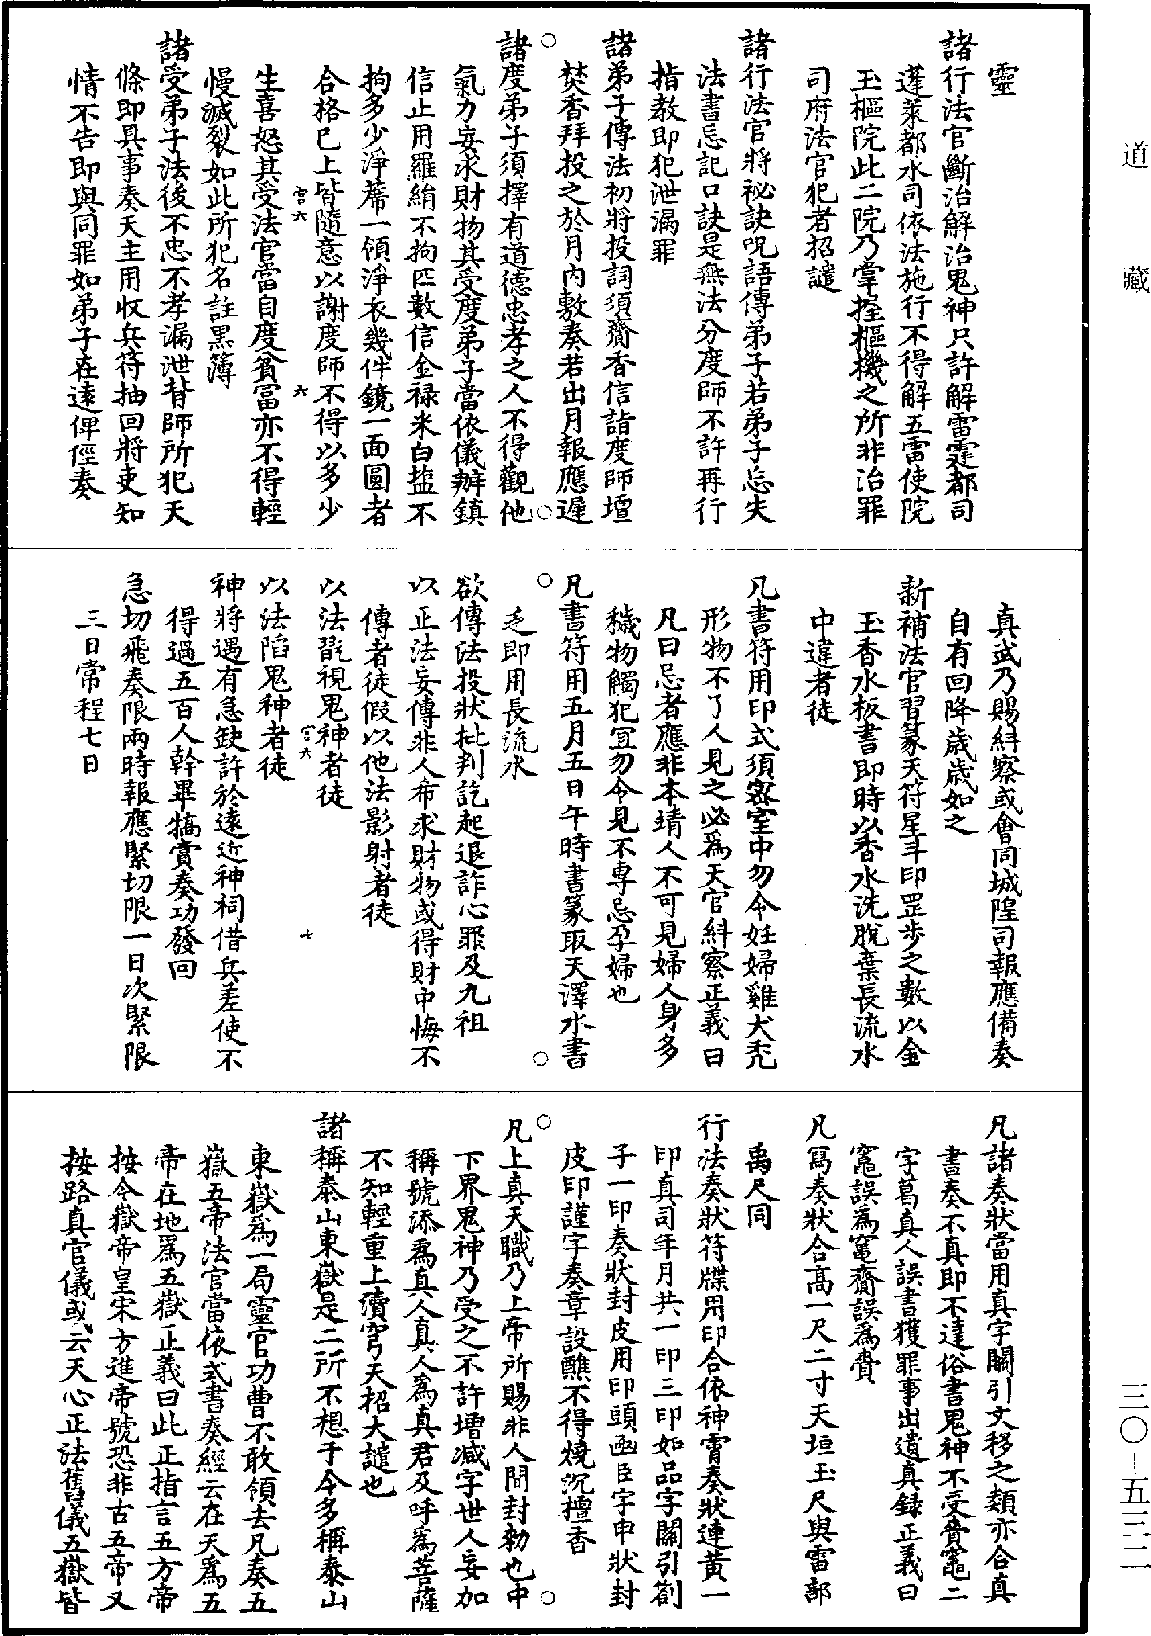 道藏
三〇-五三二
靈
諸行法官斷治解治鬼神只許解雷霆都司
蓬萊都水司依法施行不得解五雷使院
玉樞院此二院乃掌握樞機之所非治罪
司府法官犯者招譴
諸行法官將祕訣呪語傳弟子若弟子忘失
法書忘記口訣是無法分度師不許再行
指教即犯泄漏罪
諸弟子傳法初將投詞須齎香信詣度師壇
焚香拜投之於月內敷奏若出月報應遲
諸度弟子須擇有道德忠孝之人不得觀他
氣力妄求財物其受度弟子當依儀辦鎮
信止用羅絹不拘匹數信金祿米白鹽不
拘多少淨蓆一領淨衣幾件鏡一面圓者
合格已上皆隨意以謝度師不得以多少
生喜怒其受法官當自度貧富亦不得輕
慢滅裂如此所犯名註黑簿
諸受弟子法後不忠不孝漏泄背師所犯天
條即具事奏天主用收兵符抽回將吏知
情不告即與同罪如弟子在遠俾徑奏
真武乃賜糾察或會同城隍司報應備奏
自有回降歲歲如之
新補法官習篆天符星斗印罡步之數以金
玉香水板書即時以香水洗脫棄長流水
中違者徒
凡書符用印式須密室中勿令妊婦雞犬禿
形物不了人見之必為天官糾察正義曰
凡曰忌者應非本靖人不可見婦人身多
穢物觸犯冝勿令見不專忌孕婦也
凡書符用五月五日午時書篆取天澤水書
乏即用長流水
欲傳法投狀批判訖起退詐心罪及九祖
以正法妄傳非人希求財物或得財中悔不
傳者徒假以他法影射者徒
以法翫視鬼神者徒
以法陷鬼神者徒
神將遇有急缺許於遠近神祠借兵差使不
得過五百人幹畢犒賞奏功發回
急切飛奏限兩時報應緊切限一日次緊限
三日常程七日
凡諸奏狀當用真字關引文移之類亦合真
書奏不真即不達俗書鬼神不受費竈二
字葛真人誤書獲罪事出遺真錄正義曰
竈誤為竃齎誤為賷
凡寫奏狀合高一尺二寸天垣玉尺與雷部
禹尺同
行法奏狀符牒用印合依神霄奏狀連黃一
印真司年月共一印三印如品字關引劄
子一印奏狀封皮用印頭函臣字申狀封
皮印謹字奏章設醮不得燒沉檀香
凡上真天職乃上帝所賜非人間封勑也中
下界鬼神乃受之不許增減字世人妄加
稱號添為真人真人為真君及呼為菩薩
不知輕重上瀆穹天招大譴也
諸稱泰山東嶽是二所不想于今多稱泰山
東嶽為一局靈官功曹不敢領去凡奏五
嶽五帝法官當依式書奏經云在天為五
帝在地為五嶽正義曰此正指言五方帝
按令嶽帝皇宋方進帝號恐非古五帝又
按路真官儀或云天心正法舊儀五嶽皆